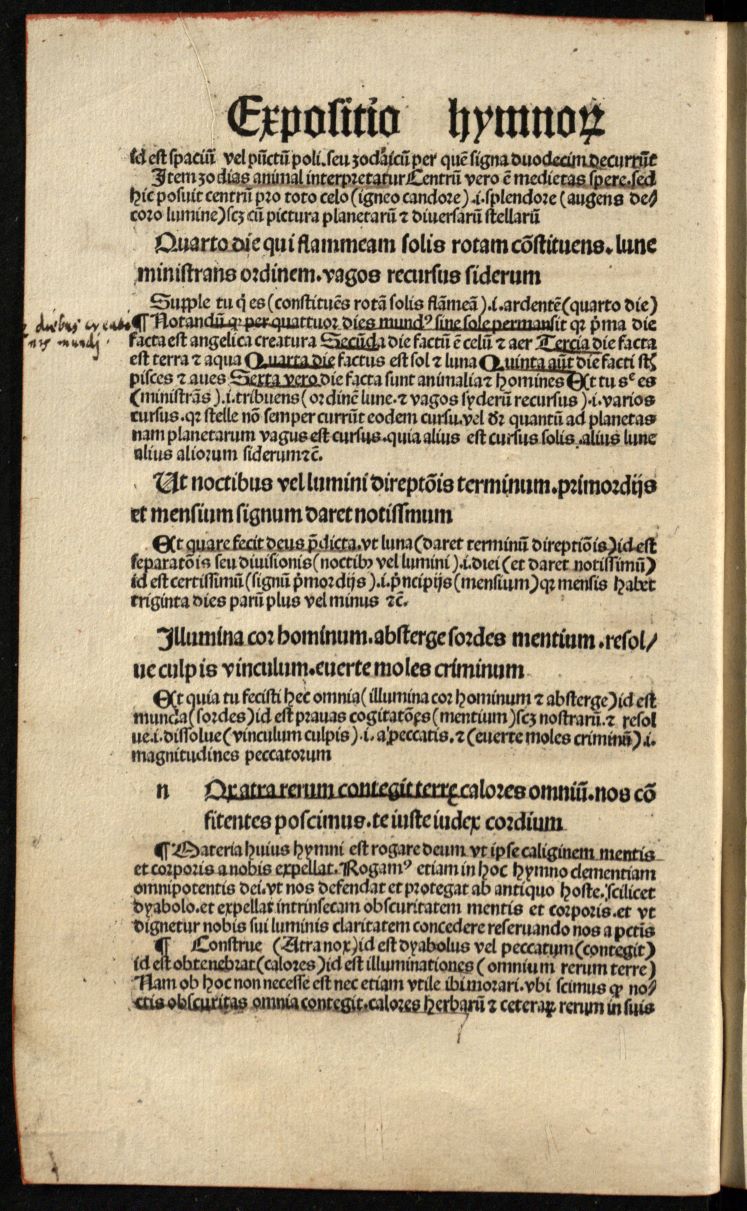 Expositio hymnoꝝ
id est spaciū vel pūctū poli.seu zodaicū per quē signa duodecim decurrūt
Item zodias animal interpretatur Centrū vero ē medietas spere.sed
hic posuit centrū pro toto celo (igneo candore).i.splendore (augens de/
coro lumine)scz cū pictura planetarū ⁊ diuersarū stellarū
Quarto die qui flammeam solis rotam cōstituens.lune
ministrans ordinem.vagos recursus siderum
Supple tu q̄ es (constituēs rotā solis flāmeā).i.ardentē(quarto die)
¶ Notandū qꝫ per quattuor dies mundꝰ sine sole permansit qꝛ p̄ma die
facta est angelica creatura Secūda die factū ē celū ⁊ aer Tercia die facta
est terra ⁊ aqua Quarta die factus est sol ⁊ luna Quinta aūt die facti st̄
pisces ⁊ aues Sexta vero die facta sunt animalia ⁊ homines Et tu es
(ministrās).i.tribuens (ordinē lune.⁊ vagos syderū recursus).i.varios
cursus.qꝛ stelle nō semper currūt eodem cursu.vel dꝛ quantū ad planetas
nam planetarum vagus est cursus.quia alius est cursus solis.alius lune
alius aliorum siderum⁊c̄.
Ut noctibus vel lumini direptōis terminum.primordijs
et mensium signum daret notissimum
Et quare fecit deus p̄dicta.vt luna (daret terminū direptiōis)id est
separatōis seu diuisionis (noctibꝫ vel lumini).i.diei (et daret notissimū)
id est certissimū (signū p̄mordijs).i.p̄ncipijs (mensium) qꝛ mensis habet
triginta dies parū plus vel minus ⁊c̄.
Illumina cor hominum.absterge sordes mentium.resol/
ue culpis vinculum.euerte moles criminum
Et quia tu fecisti hec omnia (illumina cor hominum ⁊ absterge)id est
munda (sordes)id est prauas cogitatōes (mentium)scz nostrarū.⁊ resol
ue.i.dissolue (vinculum culpis).i.a peccatis.⁊ (euerte moles criminū).i.
magnitudines peccatorum
n Ox atra rerum contegit terrę calores omniū.nos cō
fitentes poscimus.te iuste iudex cordium
¶ Materia huius hymni est rogare deum vt ipse caliginem mentis
et corporis a nobis expellat.Rogamꝰ etiam in hoc hymno clementiam
omnipotentis dei.vt nos defendat et protegat ab antiquo hoste.scilicet
dyabolo.et expellat intrinsecam obscuritatem mentis et corporis.et vt
dignetur nobis sui luminis claritatem concedere reseruando nos a pctis
¶ Construe (Atra nox)id est dyabolus vel peccatum (contegit)
id est obtenebrat (calores)id est illuminationes (omnium rerum terre)
Nam ob hoc non necesse est nec etiam vtile ibi morari.vbi scimus qꝫ no/
ctis obscuritas omnia contegit.calores herbarū ⁊ ceteraꝝ rerum in suis